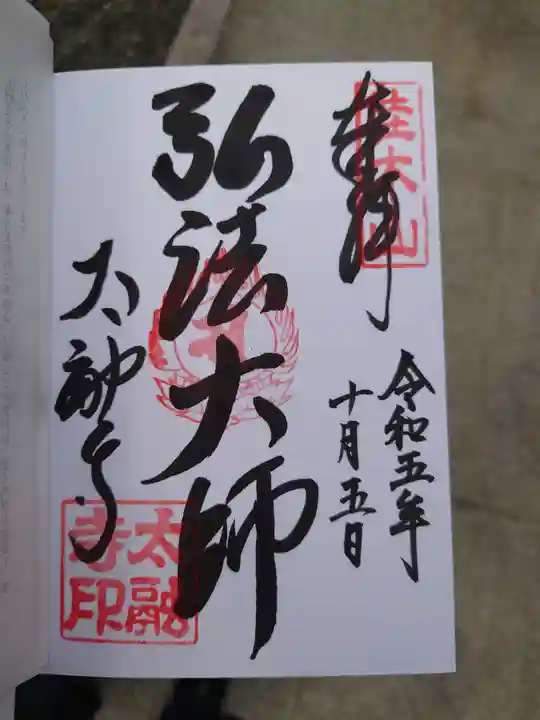 奉拝
佳木山
令和五年
十月五日
弘法大師
太融寺
太融
寺印